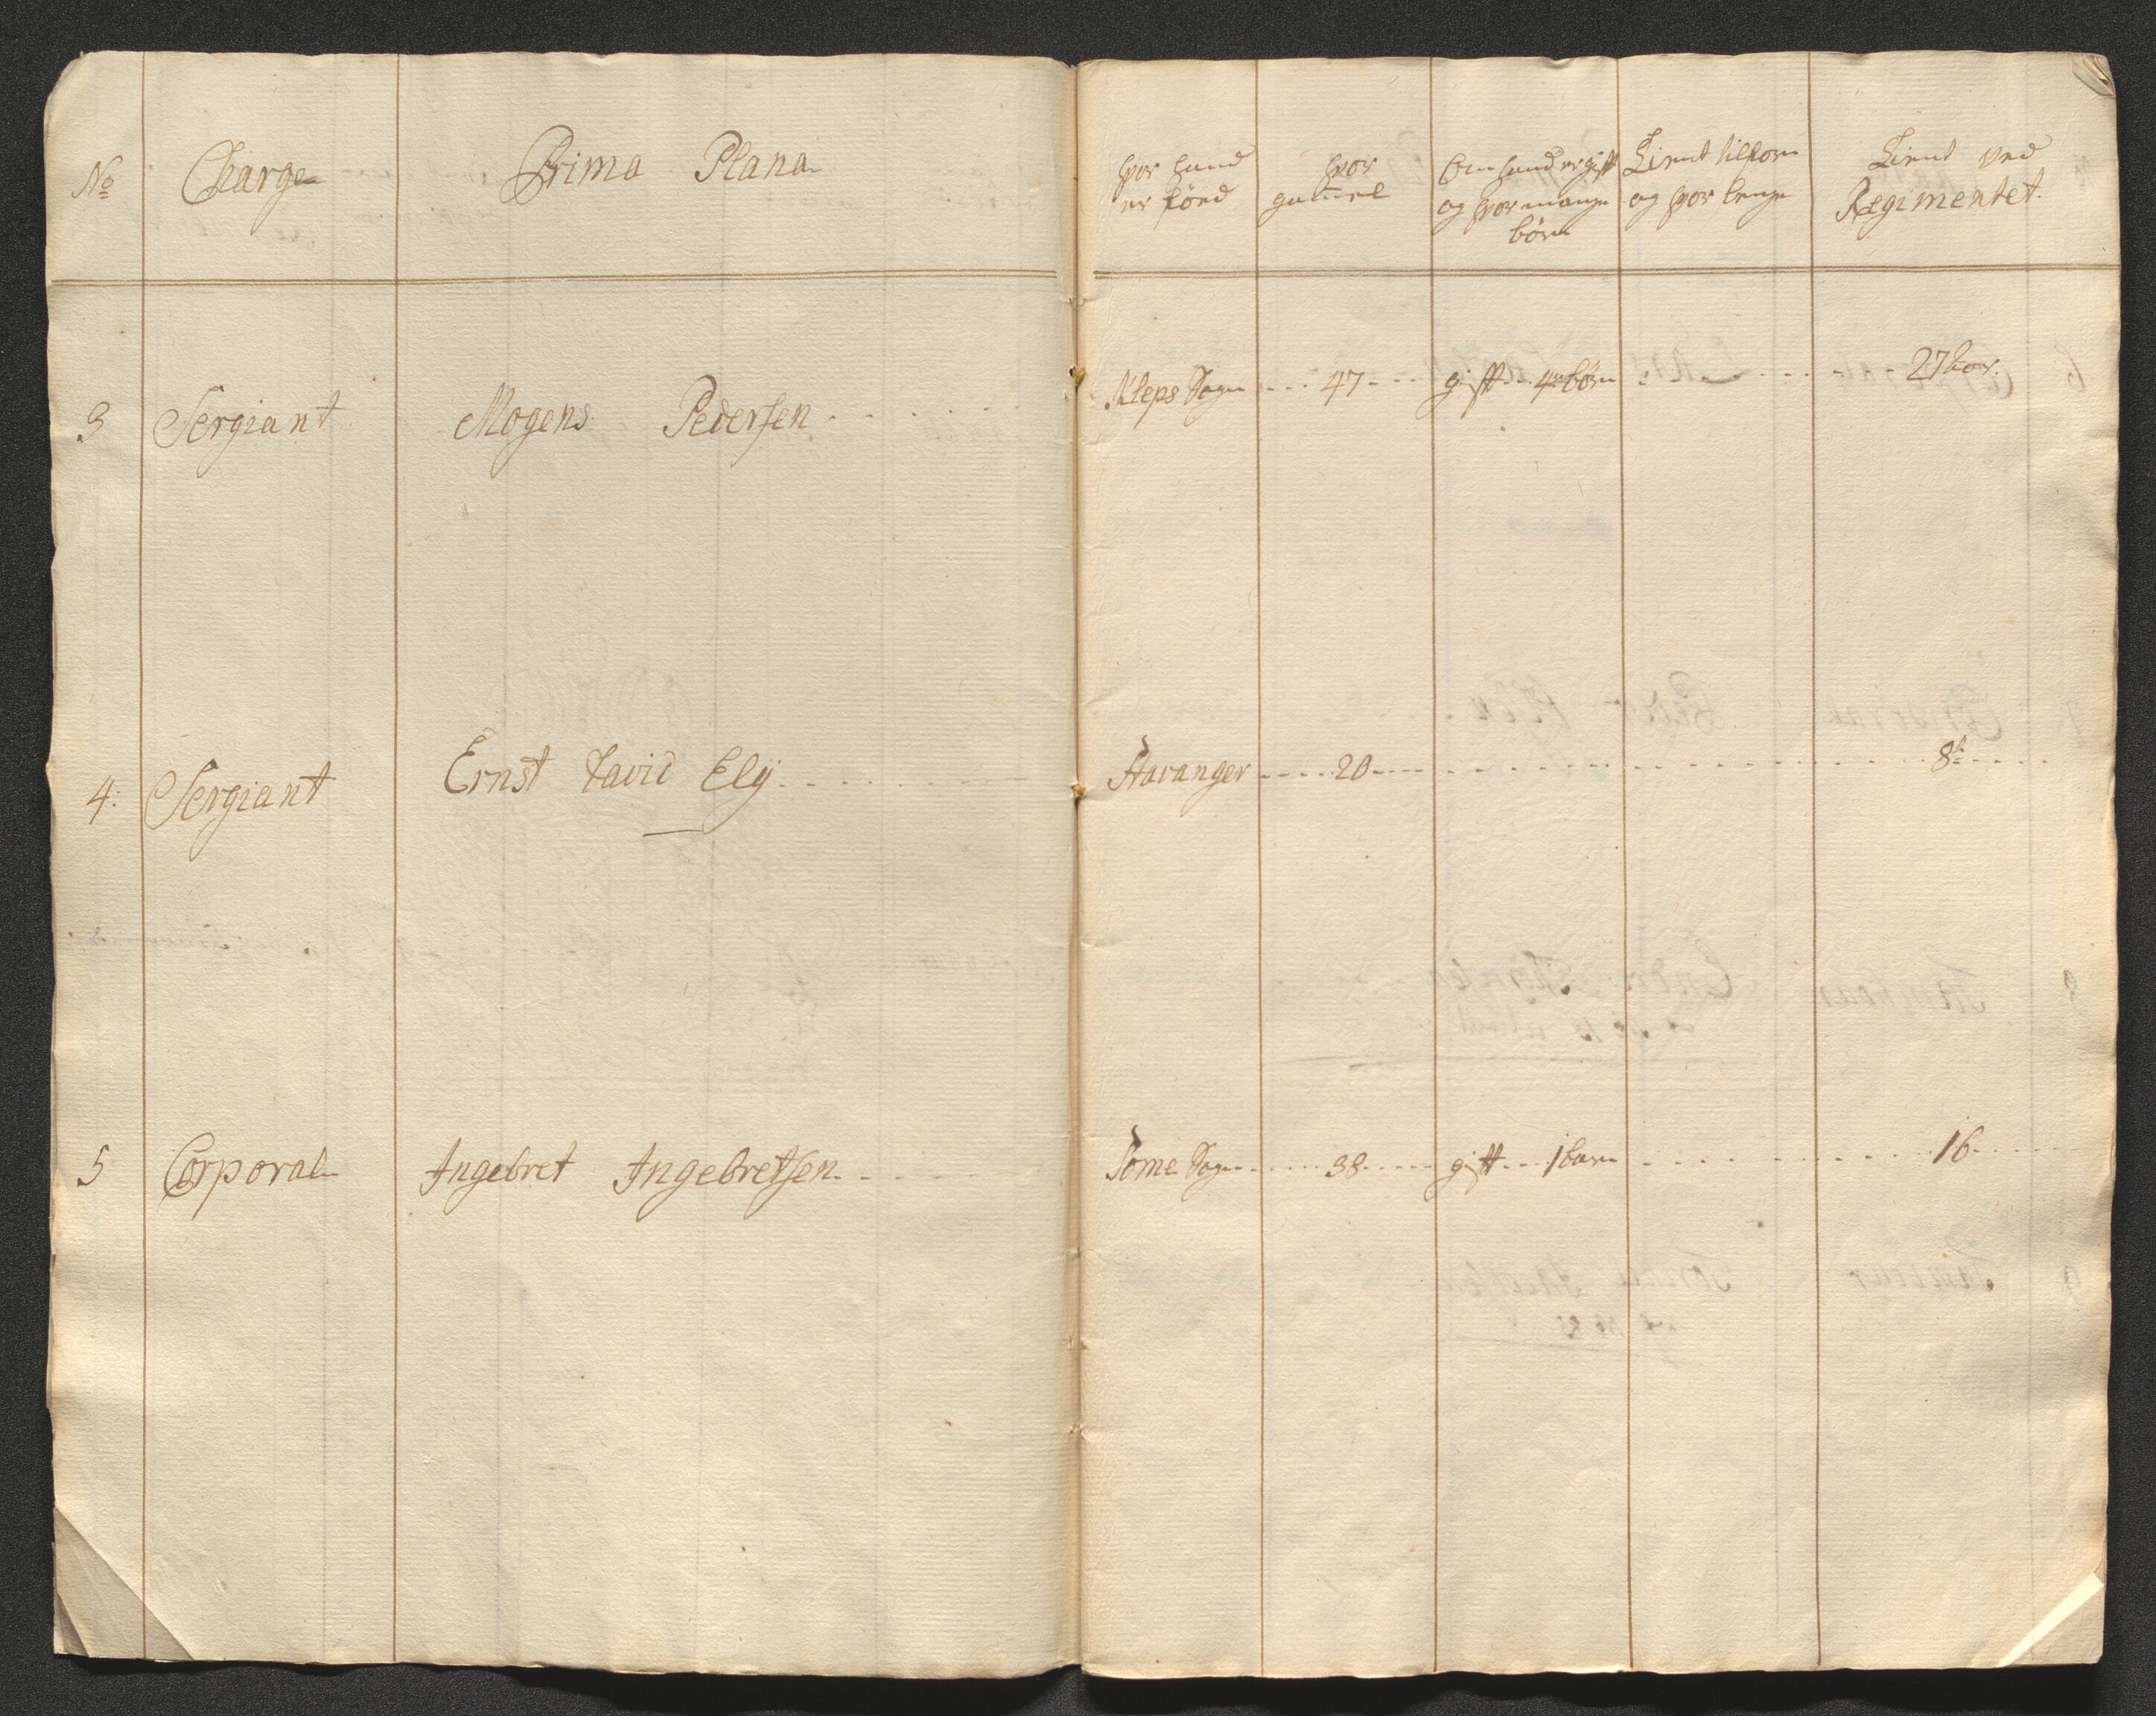 No Charge Prima Plana
hvor hand er född
hvor gammel
Om hand er gift og hvor mange börn
Tient tilforn og hvor lenge
Tient ved Regimentet.
3 Sergiant Mogens Pedersen Kleps Sogn 47 gift 4 börn 27 aar.
4: Sergiant Ernst David Ely Stavanger 20 8
5 Corporal Ingebret Ingebretsen Some Sogn 38 gift 1 barn 16